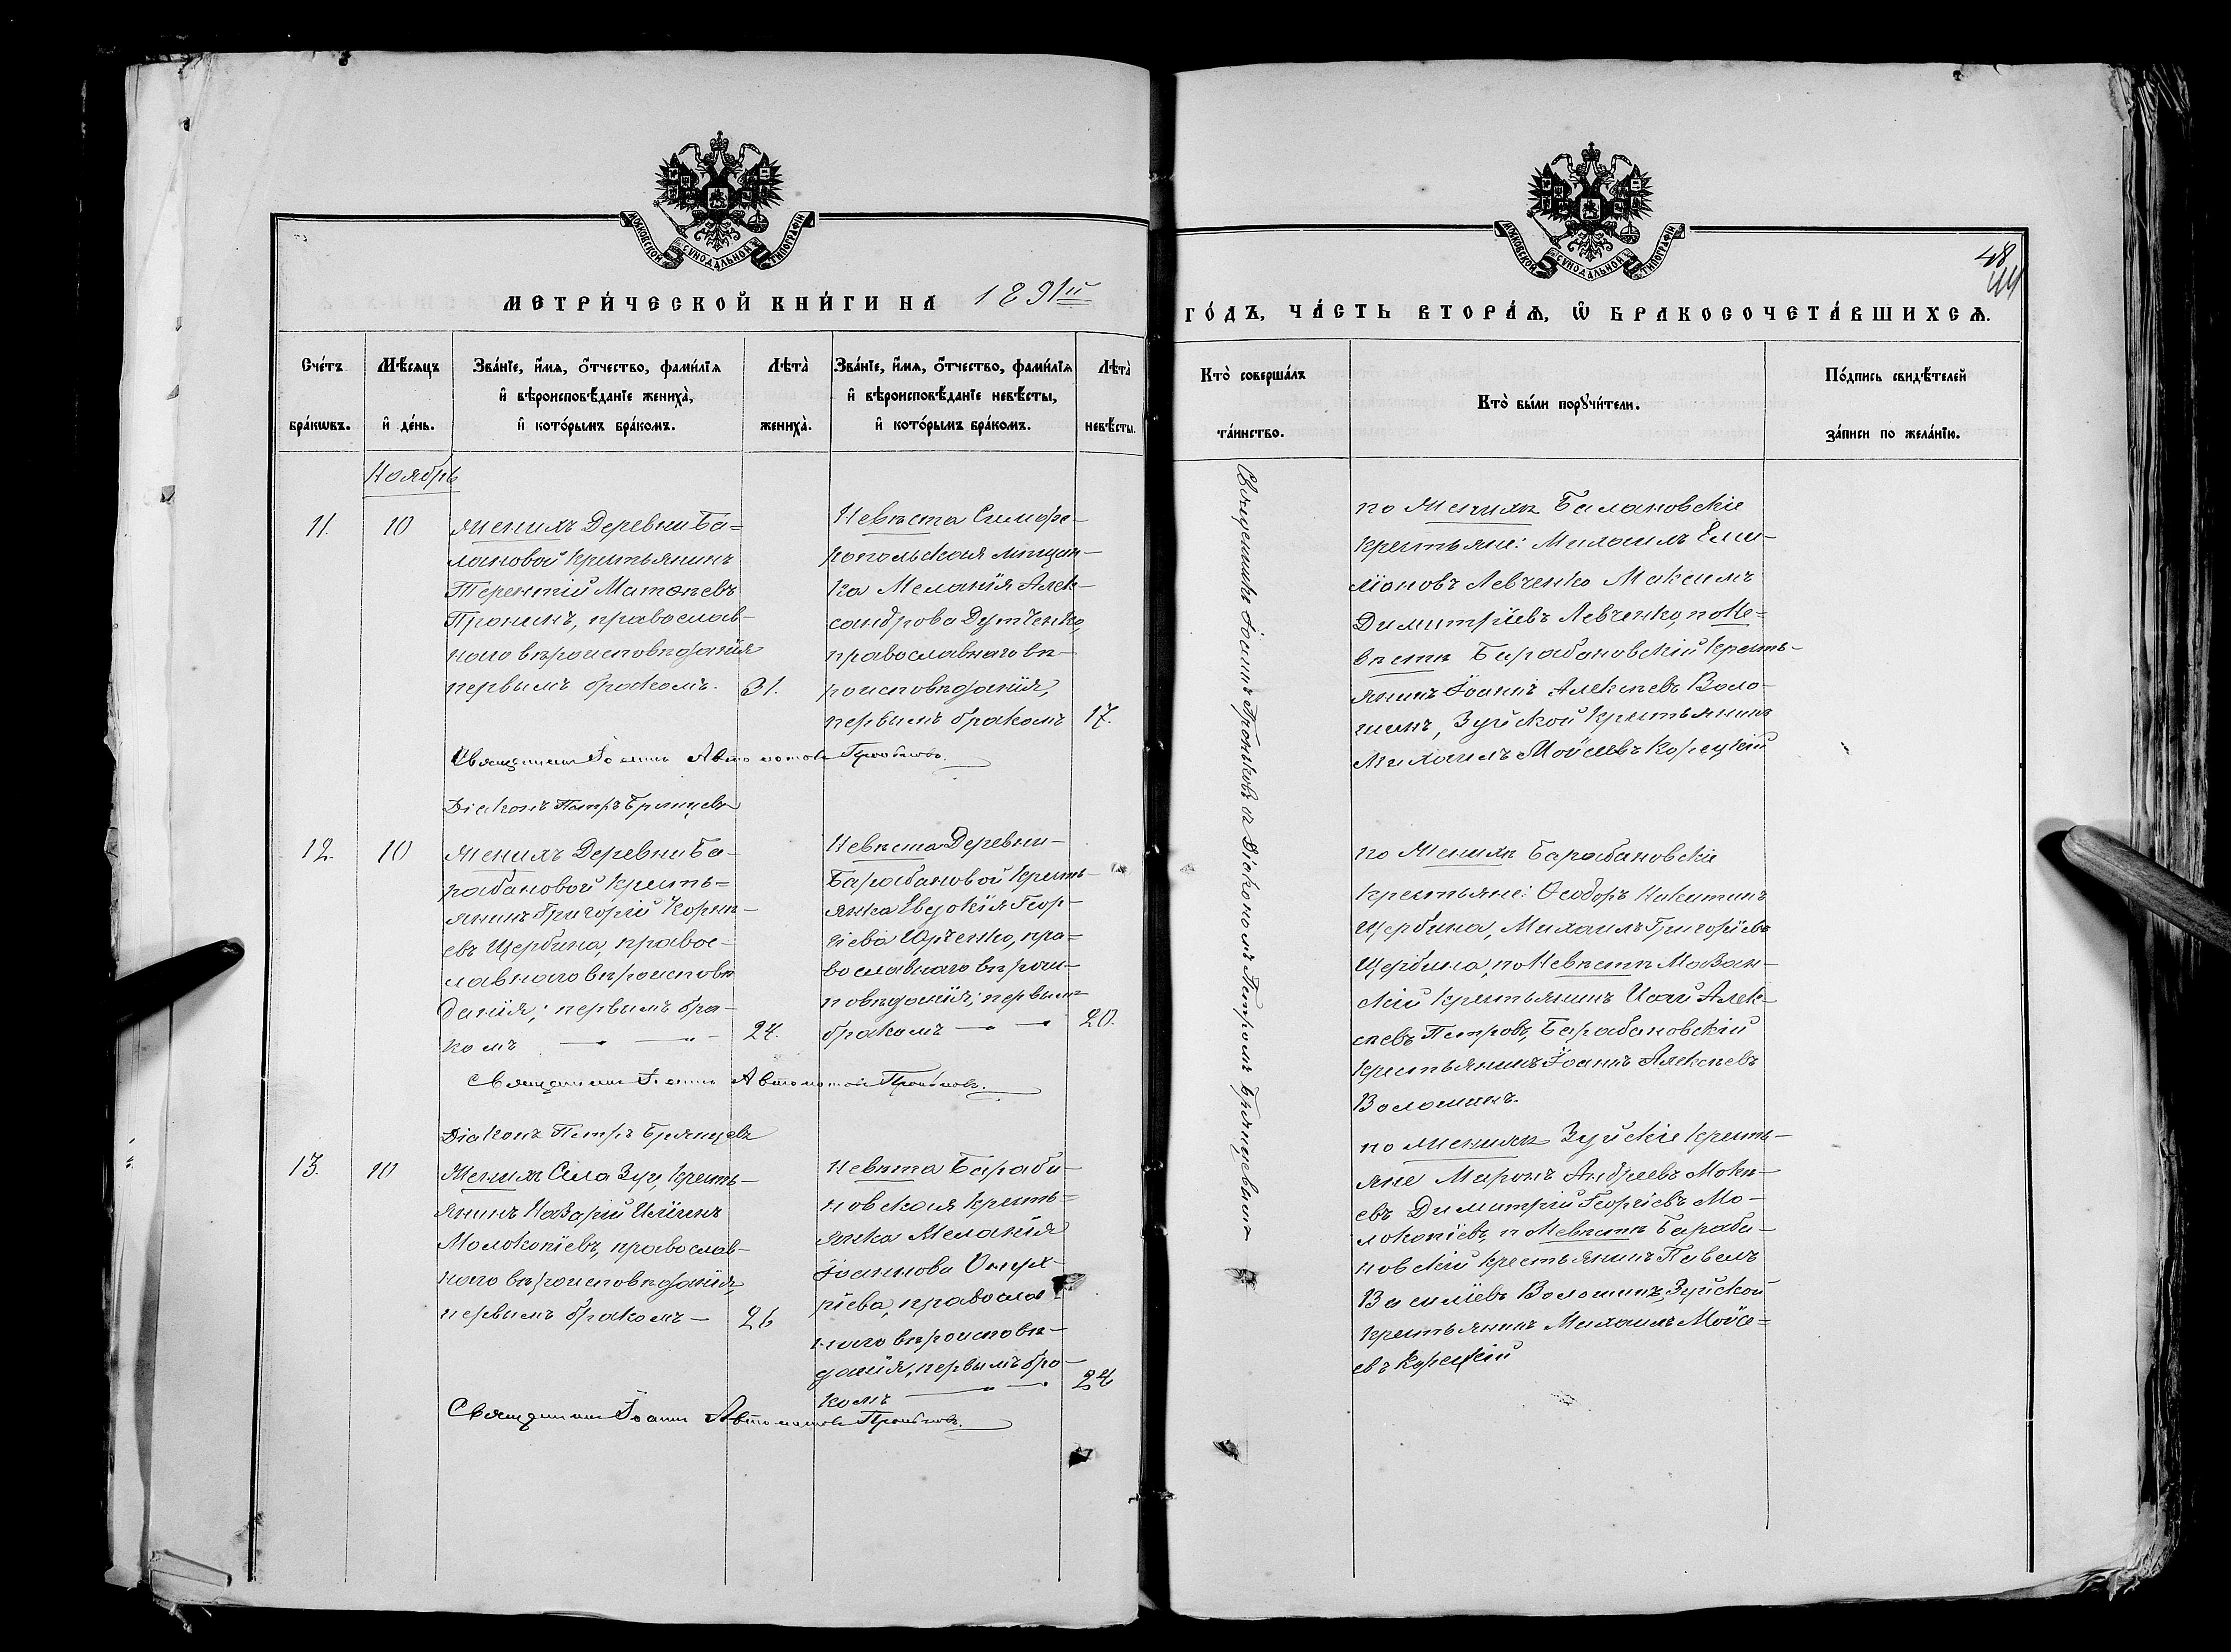 МОСКОВСКОЙ СѴНОДАЛЬНОЙ ТИПОГРАФІИ
МЕТРИ́ЧЕСКОЙ КНИ́ГИ НА 1891й
Сче́тъ бра́кѡвъ.
Мѣ́сяцъ и҆ де́нь.
Зва́нїе, и҆́мя, ѻ҆́тчество, фами́лїя
и҆ вѣроисповѣ́данїе жениха̀,
и҆ кото́рымъ бра́комъ.
Лѣта̀ жениха̀.
Зва́нїе, и҆́мя, ѻ҆́тчество, фами́лїя
и҆ вѣроисповѣ́данїе невѣ́сты,
и҆ кото́рымъ бра́комъ.
Лѣта̀ невѣ́сты.
Ноябрь
11.
10
Женихъ Деревни Ба=
лановой крестьянинъ
Терентій Матѳѣевъ
Пронинъ, православ-
наго вѣроисповѣданія
первымъ бракомъ.
31.
Невѣста Симфе-
ропольская мѣщан-
ка Меланія Алек-
сандрова Дутченко,
православнаго вѣ-
роисповѣданія,
первымъ бракомъ
17.
Священникъ Іоаннъ
Діаконъ Петръ Брянцевъ
12.
10
Женихъ Деревни Ба-
рабановой кресть=
янинъ Григорій Корнѣ-
евъ Щербина, правос-
лавнаго вѣроисповѣ
данія; первымъ бра-
комъ
24.
Невѣста Деревни-
Барабановой кресть-
янка Евдокія Геор-
гіева Юрченко, пра=
вославнаго вѣроис-
повѣданія; первымъ
бракомъ
20.
Священникъ Іоаннъ
Діаконъ Петръ Брянцевъ
13.
10
Женихъ Села Зуи, кресть-
янинъ Назарій Ильинъ
Молокопіевъ, православ-
наго вѣроисповѣданія,
первымъ бракомъ-
26
Невѣста Бараба-
новская кресть=
янка Меланія
Іоаннова Онуф-
ріева, православ-
наго вѣроисповѣ-
данія, первымъ бра-
комъ
24
Священникъ Іоаннъ
МОСКОВСКОЙ СѴНОДАЛЬНОЙ ТИПОГРАФІИ
48
44
ГО́ДЪ, ЧА́СТЬ ВТОРА́Я, Ѽ БРАКОСОЧЕТА́ВШИХСЯ.
Кто̀ соверша́лъ
та́инство.
Кто̀ бы́ли порꙋчи́тели.
По́дпись свидѣ́телей
за́писи по жела́нїю.
Священникъ Іоаннъ съ Діакономъ Петромъ Брянцевымъ
по Женихѣ Балановскіе
крестьяне: Михаилъ Еми-
ліановъ Левченко Максимъ
Димитріевъ Левченко, по Не=
вѣстѣ Барабановскій кресть-
янинъ Іоаннъ Алексѣевъ Воло-
шинъ, Зуйской крестьянинъ
Михаилъ Мойсеевъ Корецкій
по Женихѣ Барабановскіе
крестьяне: Ѳеодоръ Никитинъ
Щербина, Михаилъ Григоріевъ
Щербина, по Невѣстѣ Мазан-
скій крестьянинъ Алек-
сѣевъ Петровъ, Барабановскій
крестьянинъ Іоаннъ Алексѣевъ
Волошинъ.
по Женихѣ Зуйскіе кресть-
яне Миронъ Андреевъ Мокѣ-
евъ Димитрій Георгіевъ Мо-
локопіевъ, по Невѣстѣ Бараба-
новскій крестьянинъ Павелъ
Василіевъ Волошинъ, Зуйской
крестьянинъ Михаилъ Мойсе=
евъ Корецкій